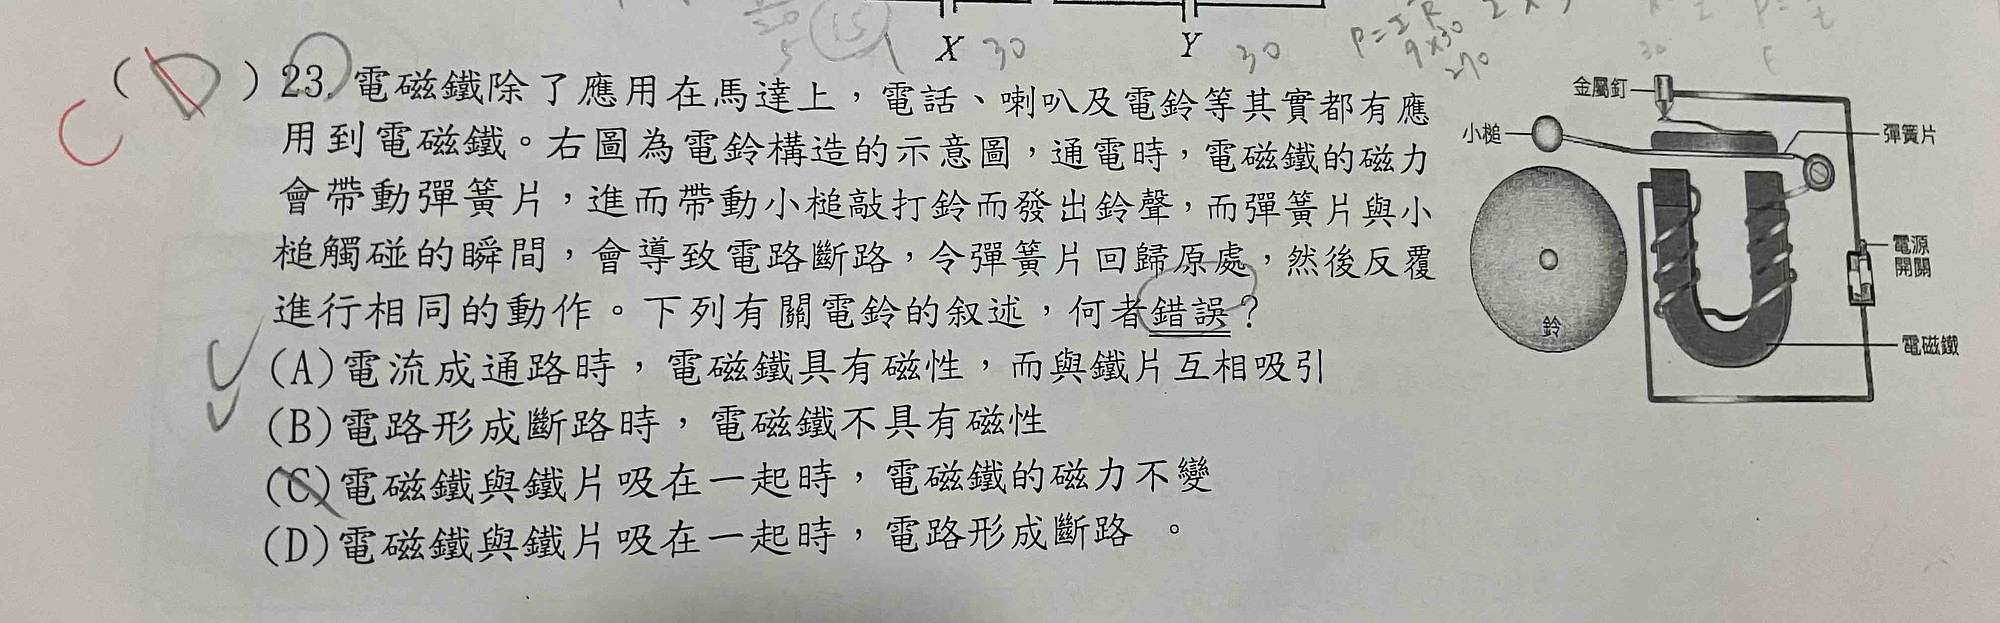 X 30 Y 30
P=I²R
9×30
270
(D) 23. 電磁鐵除了應用在馬達上，電話、喇叭及電鈴等其實都有應
C
用到電磁鐵。右圖為電鈴構造的示意圖，通電時，電磁鐵的磁力
會帶動彈簧片，進而帶動小槌敲打鈴而發出鈴聲，而彈簧片與小
槌觸碰的瞬間，會導致電路斷路，令彈簧片回歸原處，然後反覆
進行相同的動作。下列有關電鈴的叙述，何者錯誤？
(A)電流成通路時，電磁鐵具有磁性，而與鐵片互相吸引
(B)電路形成斷路時，電磁鐵不具有磁性
(C)電磁鐵與鐵片吸在一起時，電磁鐵的磁力不變
(D)電磁鐵與鐵片吸在一起時，電路形成斷路 。
金屬釘
小槌
彈簧片
電源
開關
鈴
電磁鐵